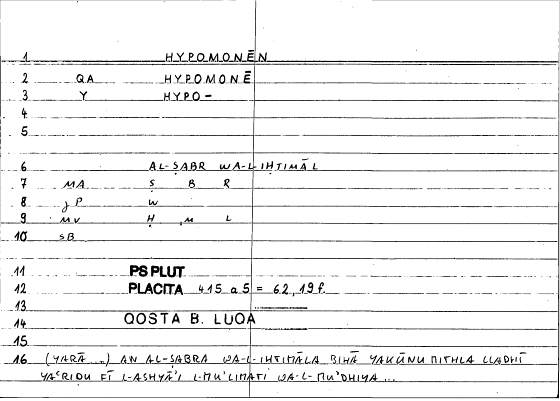 1 HYPOMONĒN
2 QA HYPOMONĒ
3 Y HYPO-
4
5
6 AL-ṢABR WA-L-IḤTIMĀL
7 MA Ṣ B R
8 P W
9 MV Ḥ M L
10 SB
11 PS PLUT
12 PLACITA 415 a 5 = 62,19 f.
13
14 QOSTA B. LUQA
15
16 (YARĀ ..) AN AL-ṢABRA WA-L-IḤTIMĀLA BIHĀ YAKŪNU MITHLA LLADHĪ
YAʿRIḌU FĪ L-ASHYĀʾI L-MUʾLIMATI WA-L-MUʾDHIYA ...